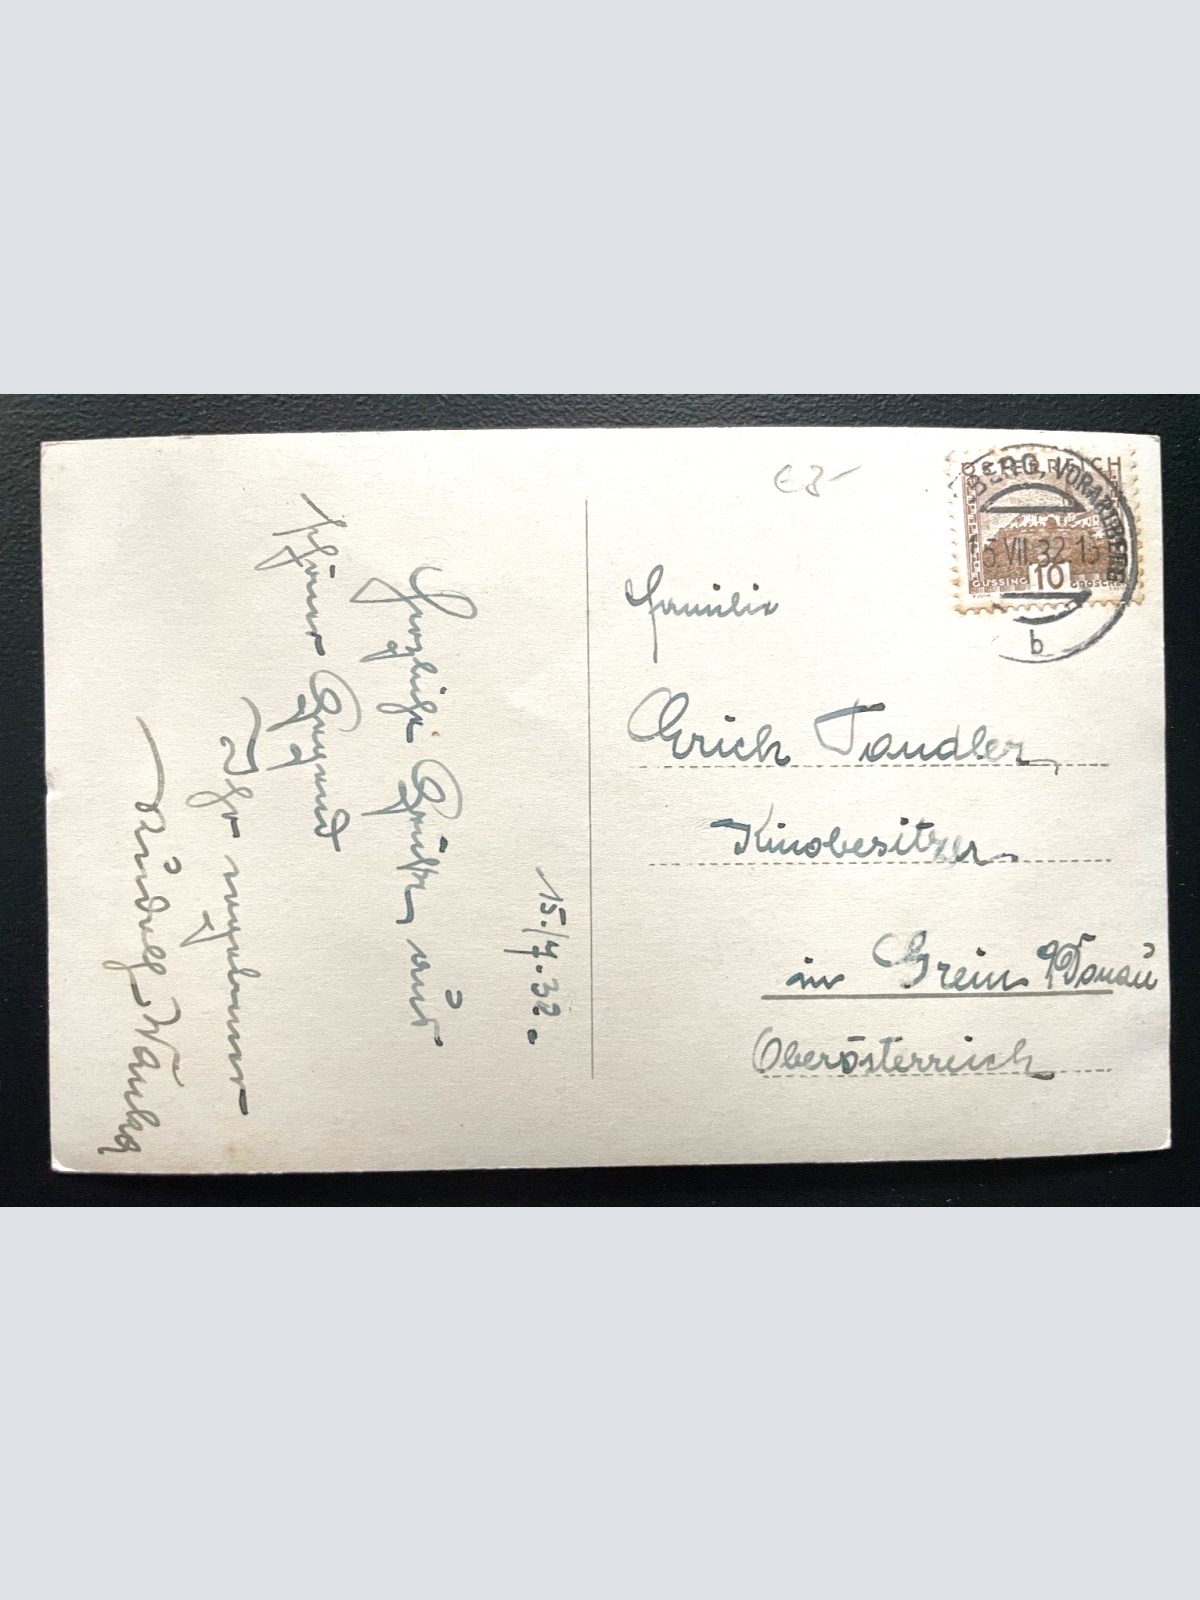 15./7.32.
Herzliche Grüße aus
schöner Gegend
Ihr ergebener
€ 3-
ÖSTERREICH
BERG, VORARLBERG
VII 32 15
GÜSSING 10 GROSCHEN
b
Familie
Erich Tandler
Kinobesitzer
in Grein a/Donau
Oberösterreich